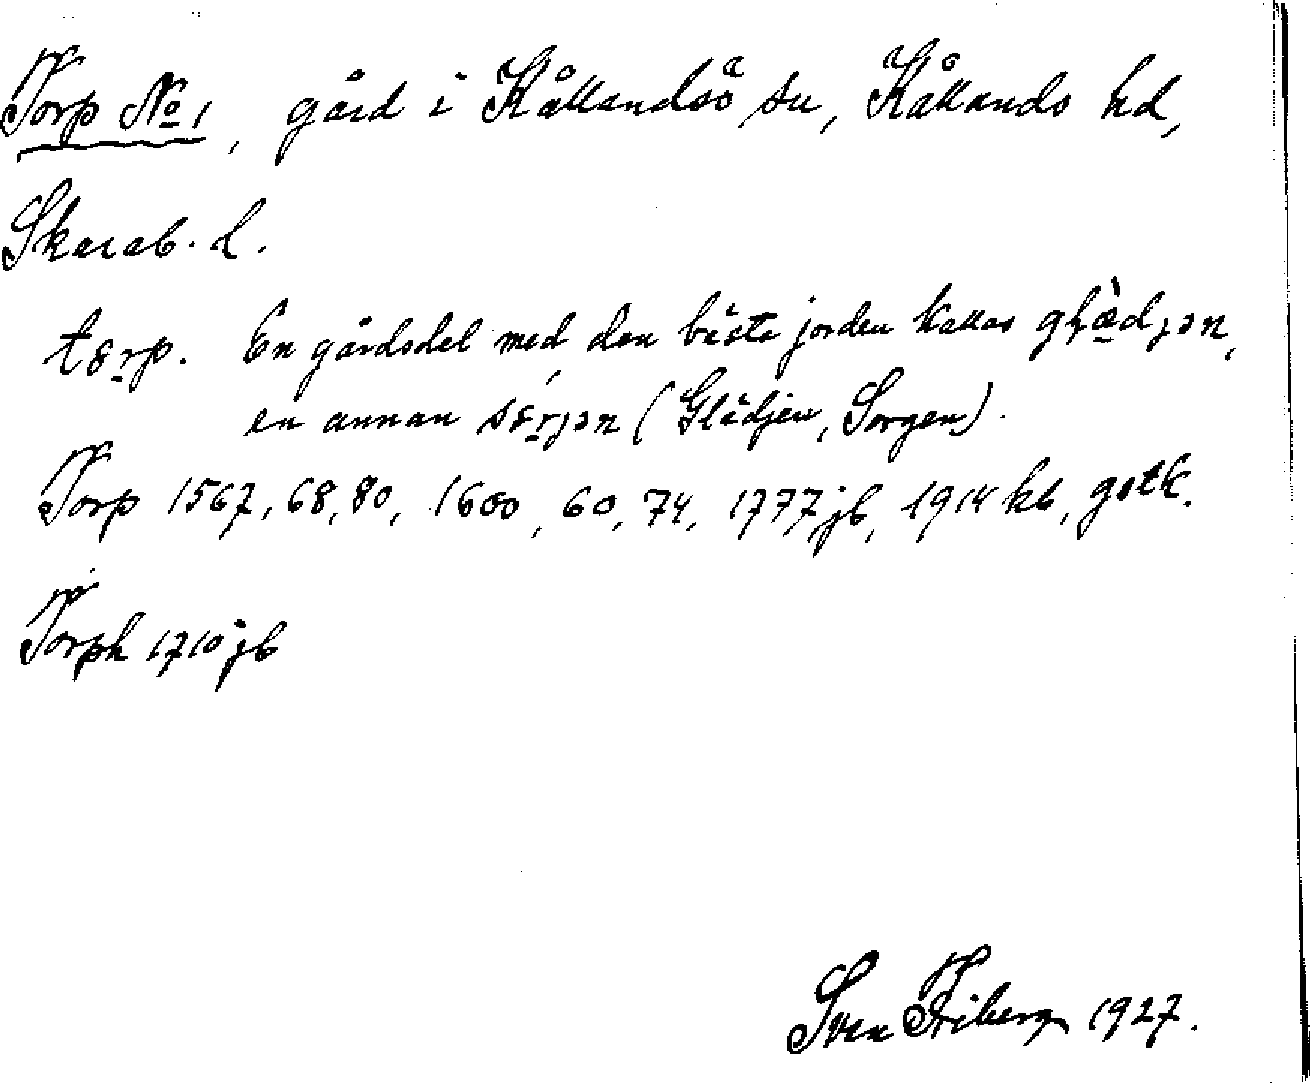 Torp No 1, gård i Kållandsö sn, Kållands hd,
Skarab. l.
tɞrp. En gårdsdel med den bästa jorden kallas glædjən,
en annan sɞrjən (Glädjen, Sorgen).
Torp 1567, 68, 80, 1600, 60, 74, 1777 jb, 1914 kb, gstk.
Torph 1710 jb
Sven Friberg 1927.